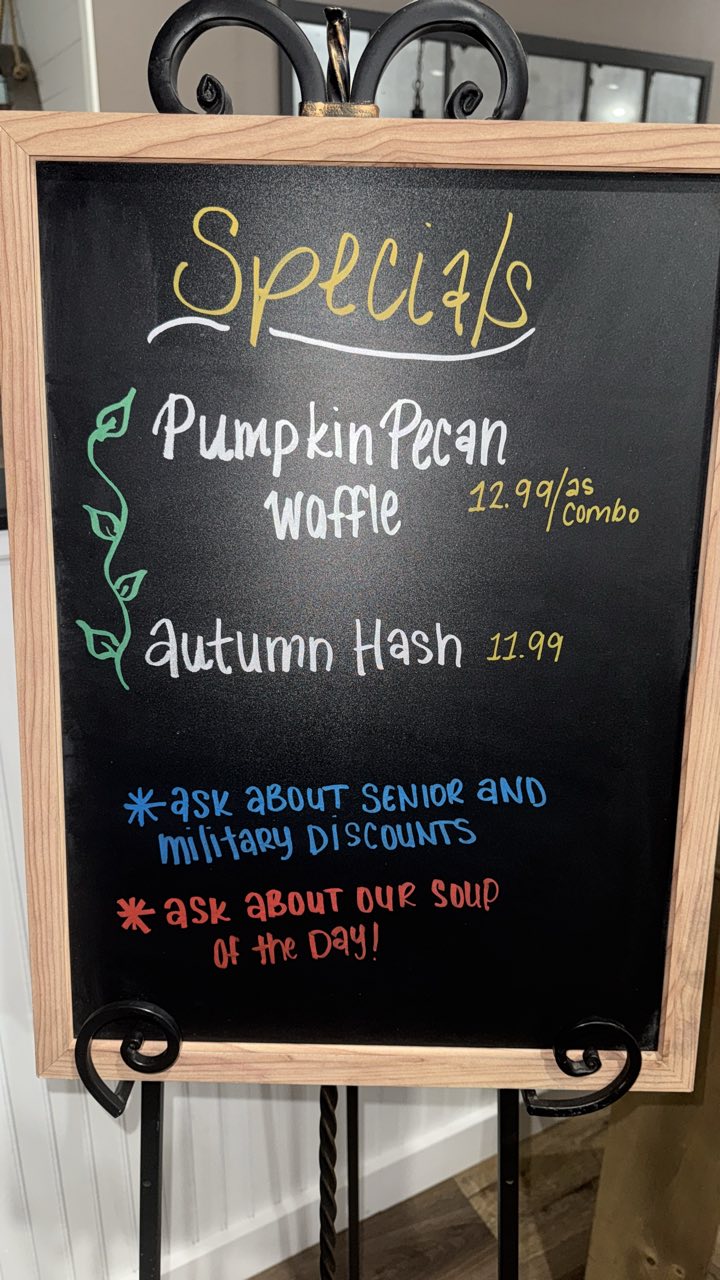 Specials
Pumpkin Pecan
waffle 12.99/as combo
autumn Hash 11.99
*ask about SENIOR and
military Discounts
*ask about our soup
of the Day!